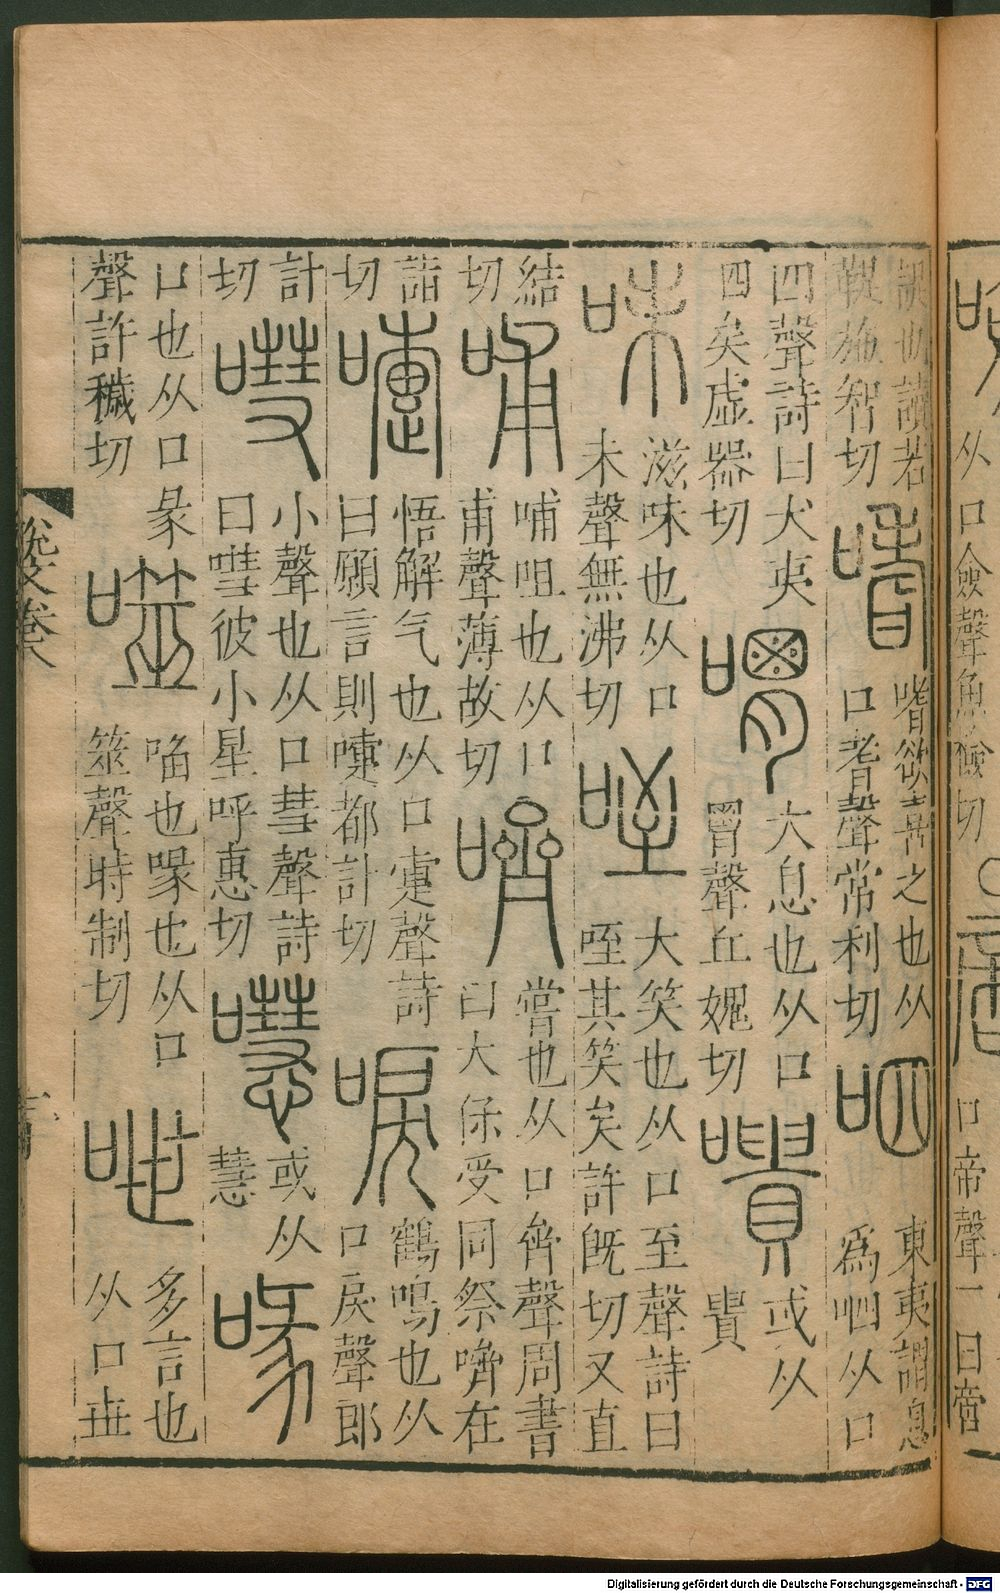 从口僉聲魚檢切○
口帝聲一曰啻
諟也讀若
鞮施智切
嗜
嗜欲喜之也从
口耆聲常利切
呬
東夷謂息
爲呬从口
四聲詩曰犬夷
四矣虛器切
喟
大息也从口
胃聲丘媿切
嘳
或从
貴
味
滋味也从口
未聲無沸切
咥
大笑也从口至聲詩曰
咥其笑矣許旣切又直
結
切
哺
哺咀也从口
甫聲薄故切
嚌
嘗也从口齊聲周書
曰大保受同祭嚌在
詣
切
嚏
悟解气也从口疐聲詩
曰願言則嚏都計切
唳
鶴鳴也从
口戾聲郎
計
切
嘒
小聲也从口彗聲詩
曰嘒彼小星呼惠切
嚖
或从
慧
喙
口也从口彖
聲許穢切
噬
啗也喙也从口
筮聲時制切
呭
多言也
从口世
說文卷八